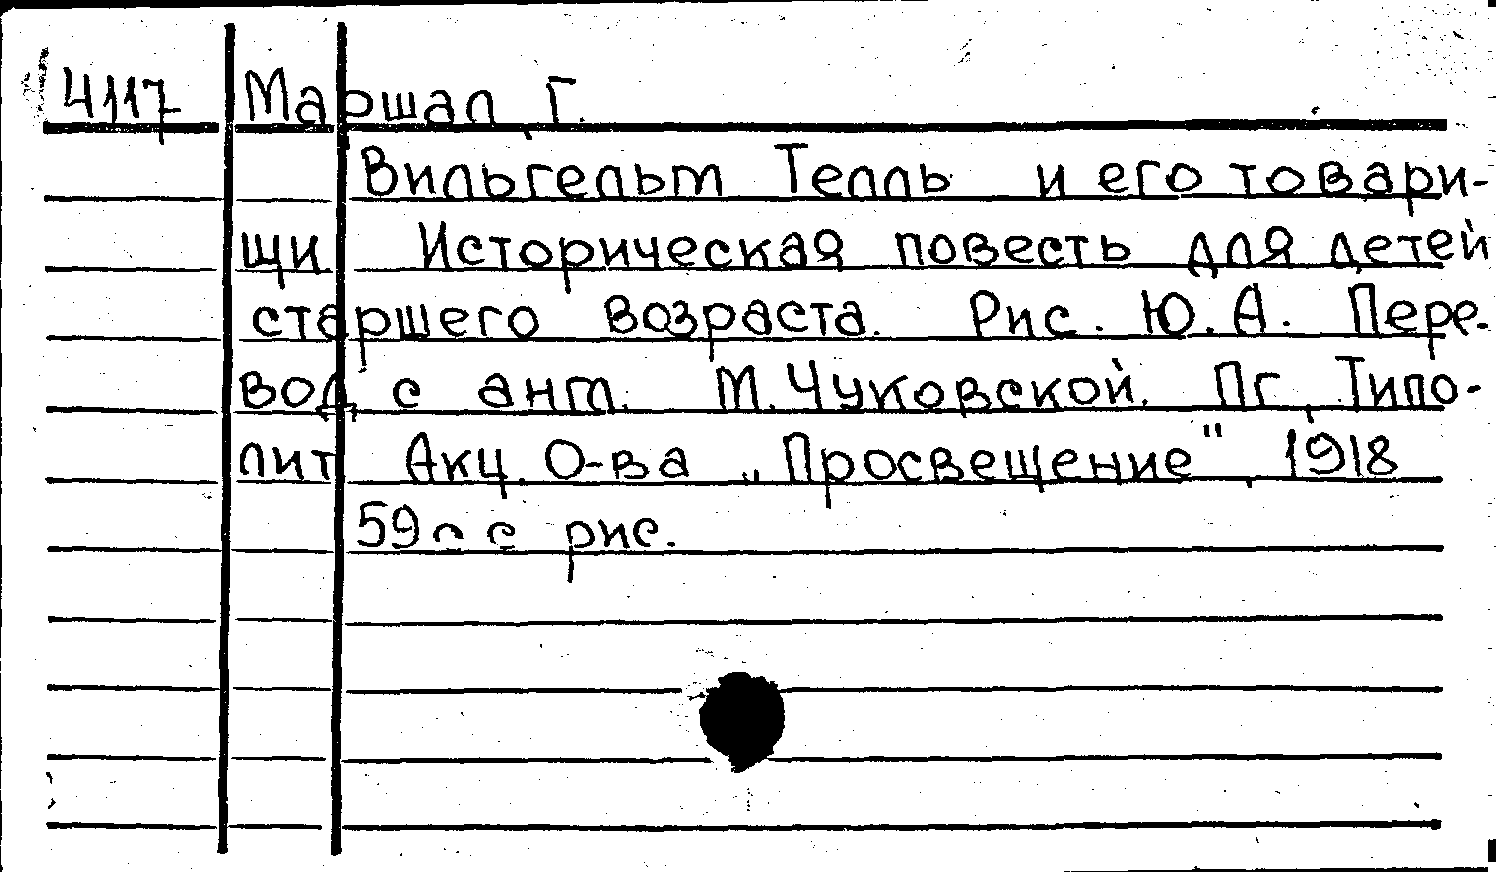 4117 Маршал, Г.
Вильгельм Телль и его товари-
щи Историческая повесть для детей
старшего возраста. Рис. Ю. А. Пере-
вод с англ. М. Чуковской. Пг, Типо-
лит Акц. О-ва „Просвещение", 1918
59 с с рис.